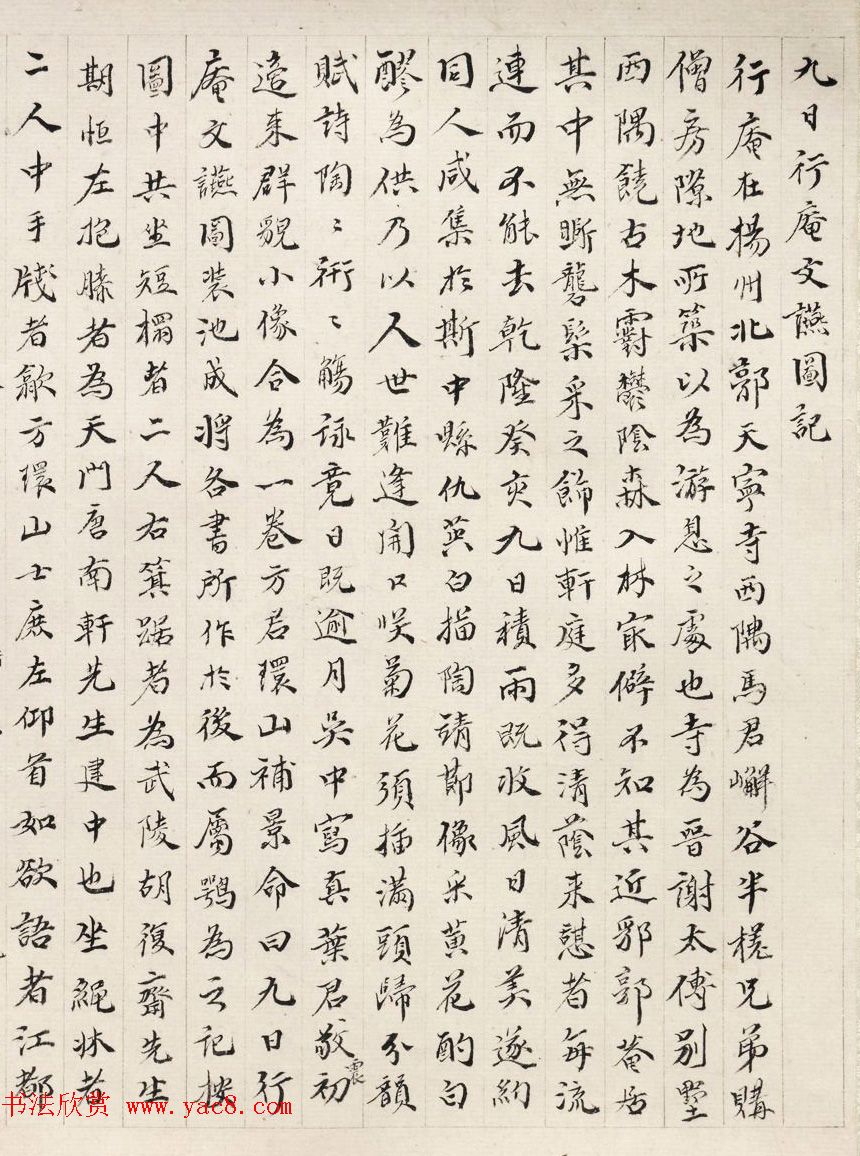 九日行庵文讌圖記
行庵在揚州北郭天寧寺西隅馬君嶰谷半槎兄弟購
僧房隙地所築以為游息之處也寺為晉謝太傅別墅
西隅饒古木霨鬱陰森入林冣僻不知其近郛郭菴居
其中無斲礱髹采之飾惟軒庭多得清蔭来憩者每流
連而不能去乾隆癸亥九日積雨既收風日清美遂約
同人咸集於斯中縣仇英白描陶靖節像采黃花酌白
醪為供乃以人世難逢開口咲菊花須插滿頭歸分韻
賦詩陶〻衎〻觴詠竟日既逾月吳中寫真葉君敬初
震
造来群貌小像合為一卷方君環山補景命曰九日行
庵文讌圖裝池成将各書所作於後而屬鶚為之記按
圖中共坐短榻者二人右箕踞者為武陵胡復齋先生
期恒左抱膝者為天門唐南軒先生建中也坐繩牀者
二人中手牋者歙方環山士庶左仰首如欲語者江都
书法欣赏 www.yac8.com